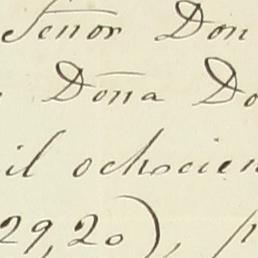 Señor Don
Doña Do
il ochocien
29,20), p